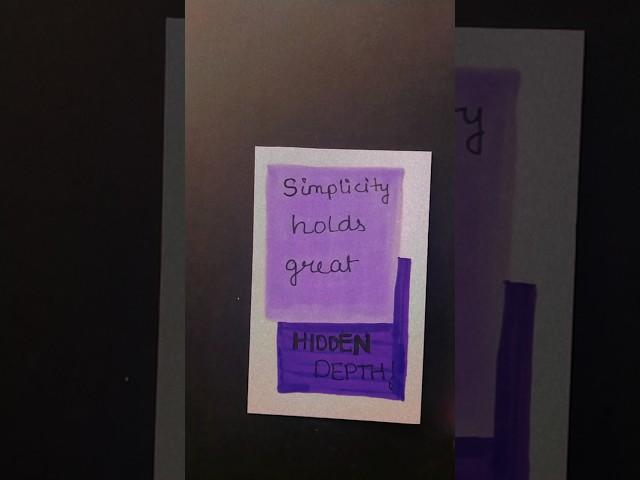 Simplicity
holds
great
HIDDEN
DEPTH!
y